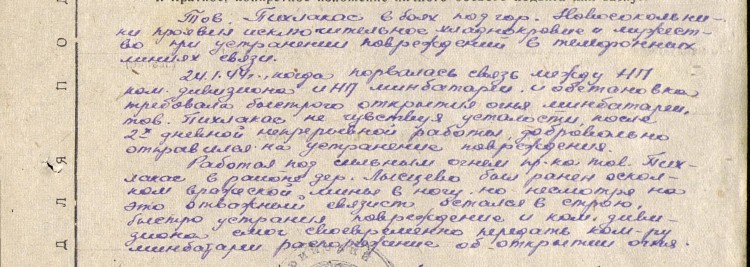 Тов. Пихлакас в боях под гор. Новосокольни-
ки проявил исключительное хладнокровие и мужест-
во при устранении повреждений в телефонных
линиях связи.
24.1.44г. когда порвалась связь между НП
ком. дивизиона и НП минбатареи и обстановка
требовала быстрого открытия огня минбатареи,
тов. Пихлакас не чувствуя усталости, после
2х дневной непрерывной работы, добровольно
отправился на устранение повреждения.
Работая под сильным огнем пр-ка тов. Пих-
лакас в районе дер. Лысцево был ранен оскол-
ком вражеской мины в ногу, но несмотря на
это отважный связист остался в строю,
быстро устранил повреждение и ком. диви-
зиона смог своевременно передать ком-ру
минбатареи распоряжение об открытии огня.
Д Л Я П О Д